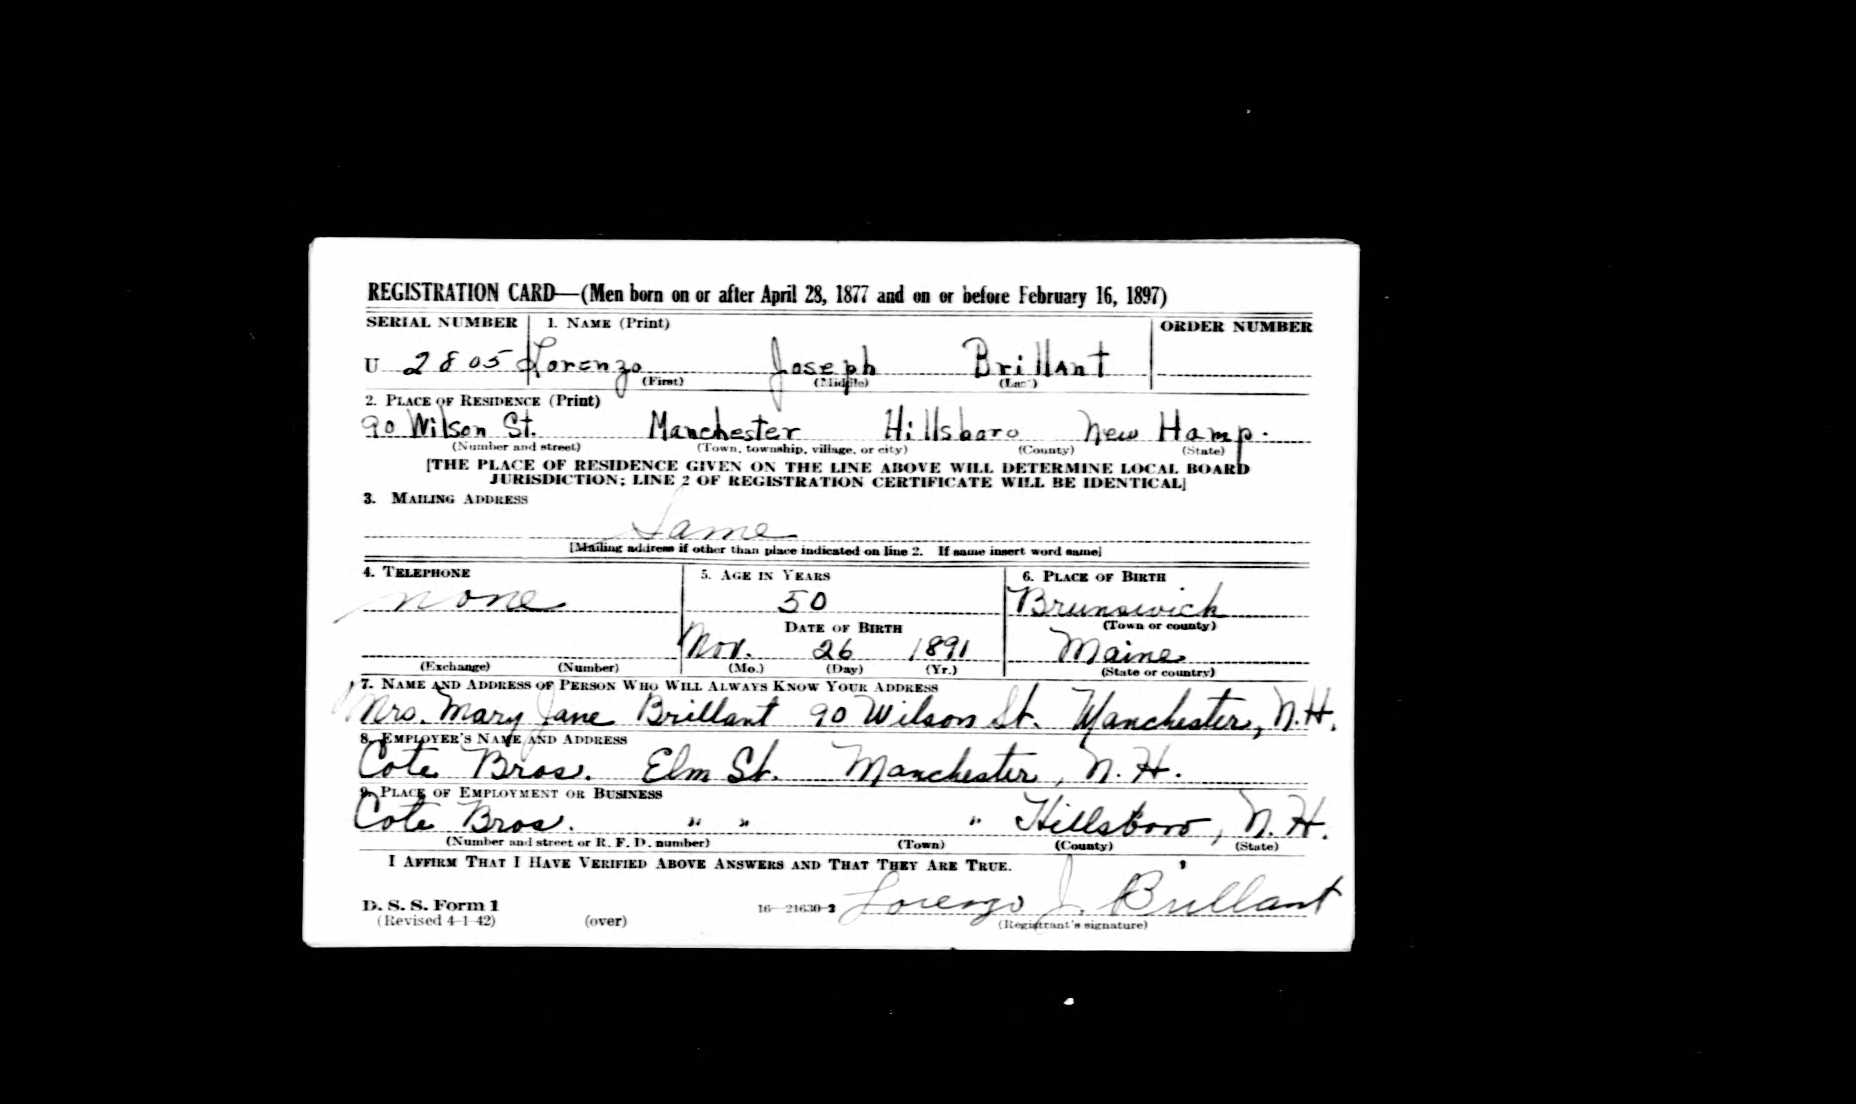 REGISTRATION CARD—(Men born on or after April 28, 1877 and on or before February 16, 1897)
SERIAL NUMBER 1. NAME (Print) ORDER NUMBER
U 2805 Lorenzo Joseph Brillant
(First) (Middle) (Last)
2. PLACE OF RESIDENCE (Print)
90 Wilson St. Manchester Hillsboro New Hamp.
(Number and street) (Town, township, village, or city) (County) (State)
[THE PLACE OF RESIDENCE GIVEN ON THE LINE ABOVE WILL DETERMINE LOCAL BOARD
JURISDICTION; LINE 2 OF REGISTRATION CERTIFICATE WILL BE IDENTICAL]
3. MAILING ADDRESS
Same
[Mailing address if other than place indicated on line 2. If same insert word same]
4. TELEPHONE 5. AGE IN YEARS 6. PLACE OF BIRTH
none 50 Brunswick
DATE OF BIRTH (Town or county)
Nov. 26 1891 Maine
(Exchange) (Number) (Mo.) (Day) (Yr.) (State or country)
7. NAME AND ADDRESS OF PERSON WHO WILL ALWAYS KNOW YOUR ADDRESS
Mrs. Mary Jane Brillant 90 Wilson St. Manchester, N.H.
8. EMPLOYER'S NAME AND ADDRESS
Cote Bros. Elm St. Manchester, N.H.
9. PLACE OF EMPLOYMENT OR BUSINESS
Cote Bros. " " " Hillsboro, N.H.
(Number and street or R. F. D. number) (Town) (County) (State)
I AFFIRM THAT I HAVE VERIFIED ABOVE ANSWERS AND THAT THEY ARE TRUE.
D. S. S. Form 1 16—21630-2 Lorenzo J. Brillant
(Revised 4-1-42) (over) (Registrant's signature)